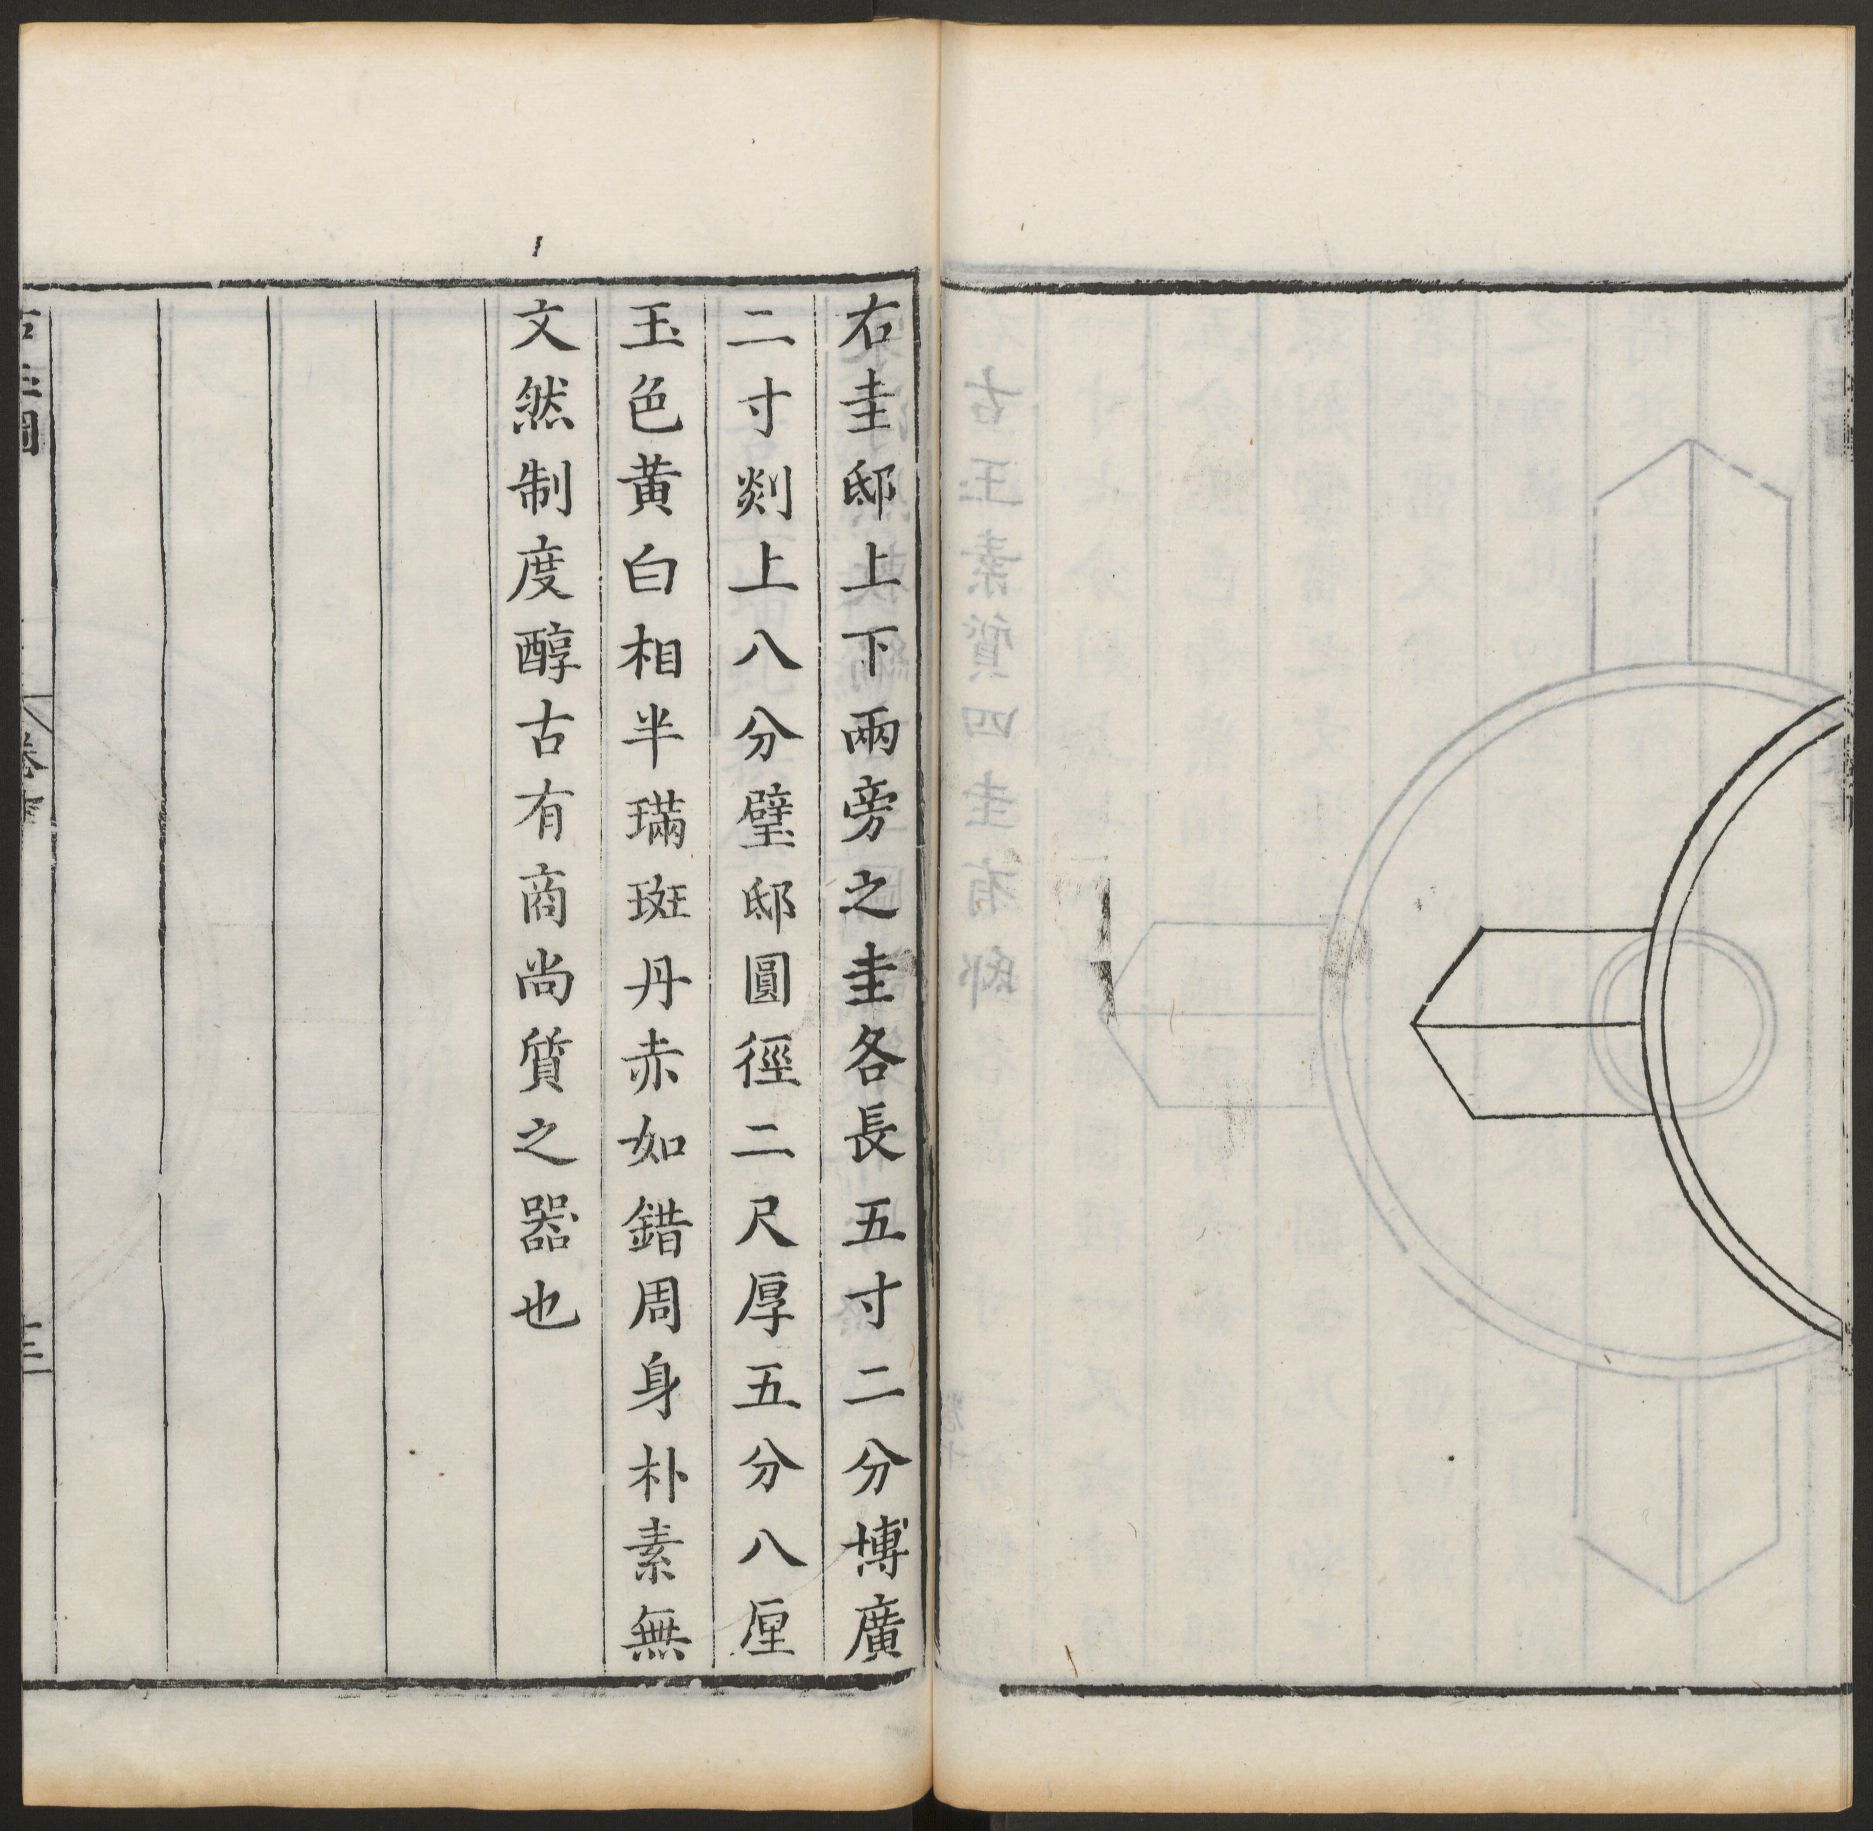 右圭邸上下兩旁之圭各長五寸二分博廣
二寸剡上八分璧邸圓徑二尺厚五分八厘
玉色黄白相半璊斑丹赤如錯周身朴素無
文然制度醇古有商尚質之器也